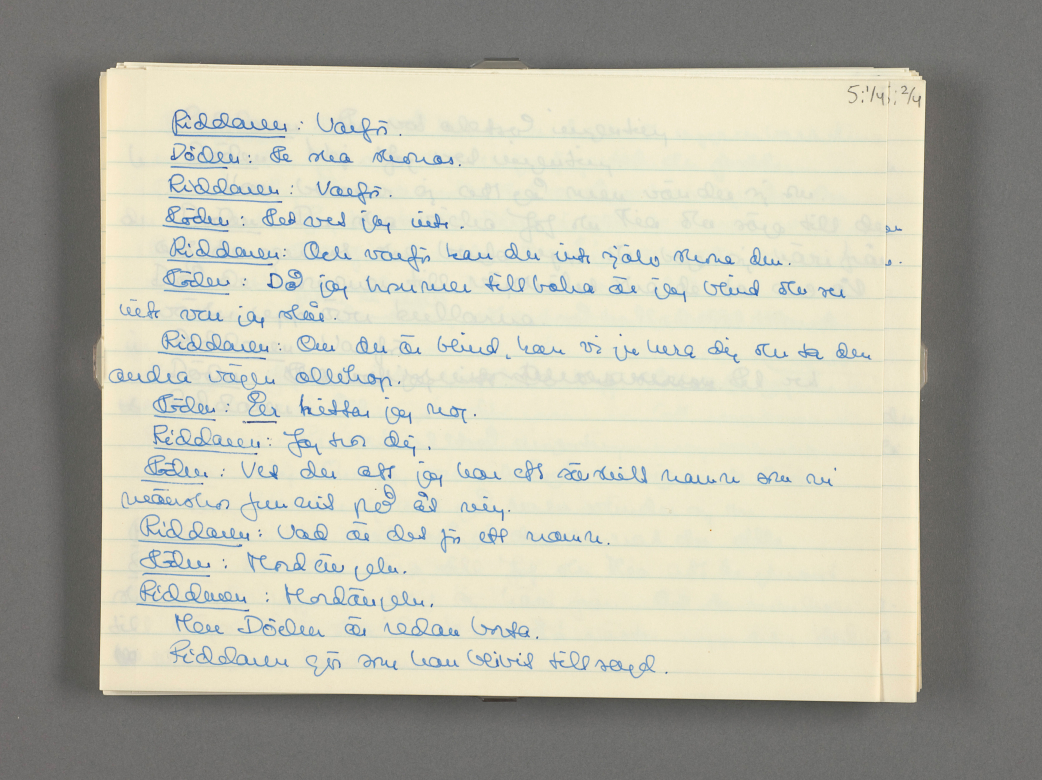 5:1/4; 2/4
Riddaren: Varför.
Döden: De ska skonas.
Riddaren: Varför.
Döden: Det vet jag inte.
Riddaren: Och varför kan du inte själv skona dem.
Döden: Då jag kommer tillbaka är jag blind och ser
inte vem jag slår.
Riddaren: Om du är blind, kan vi ju lura dig och ta den
andra vägen allihop.
Döden: Er hittar jag nog.
Riddaren: Jag tror dig.
Döden: Vet du att jag har ett särskilt namn som ni
mänskor funnit på åt mig.
Riddaren: Vad är det för ett namn.
Döden: Mordängeln.
Riddaren: Mordängeln.
Men Döden är redan borta.
Riddaren gör som han blivit tillsagd.